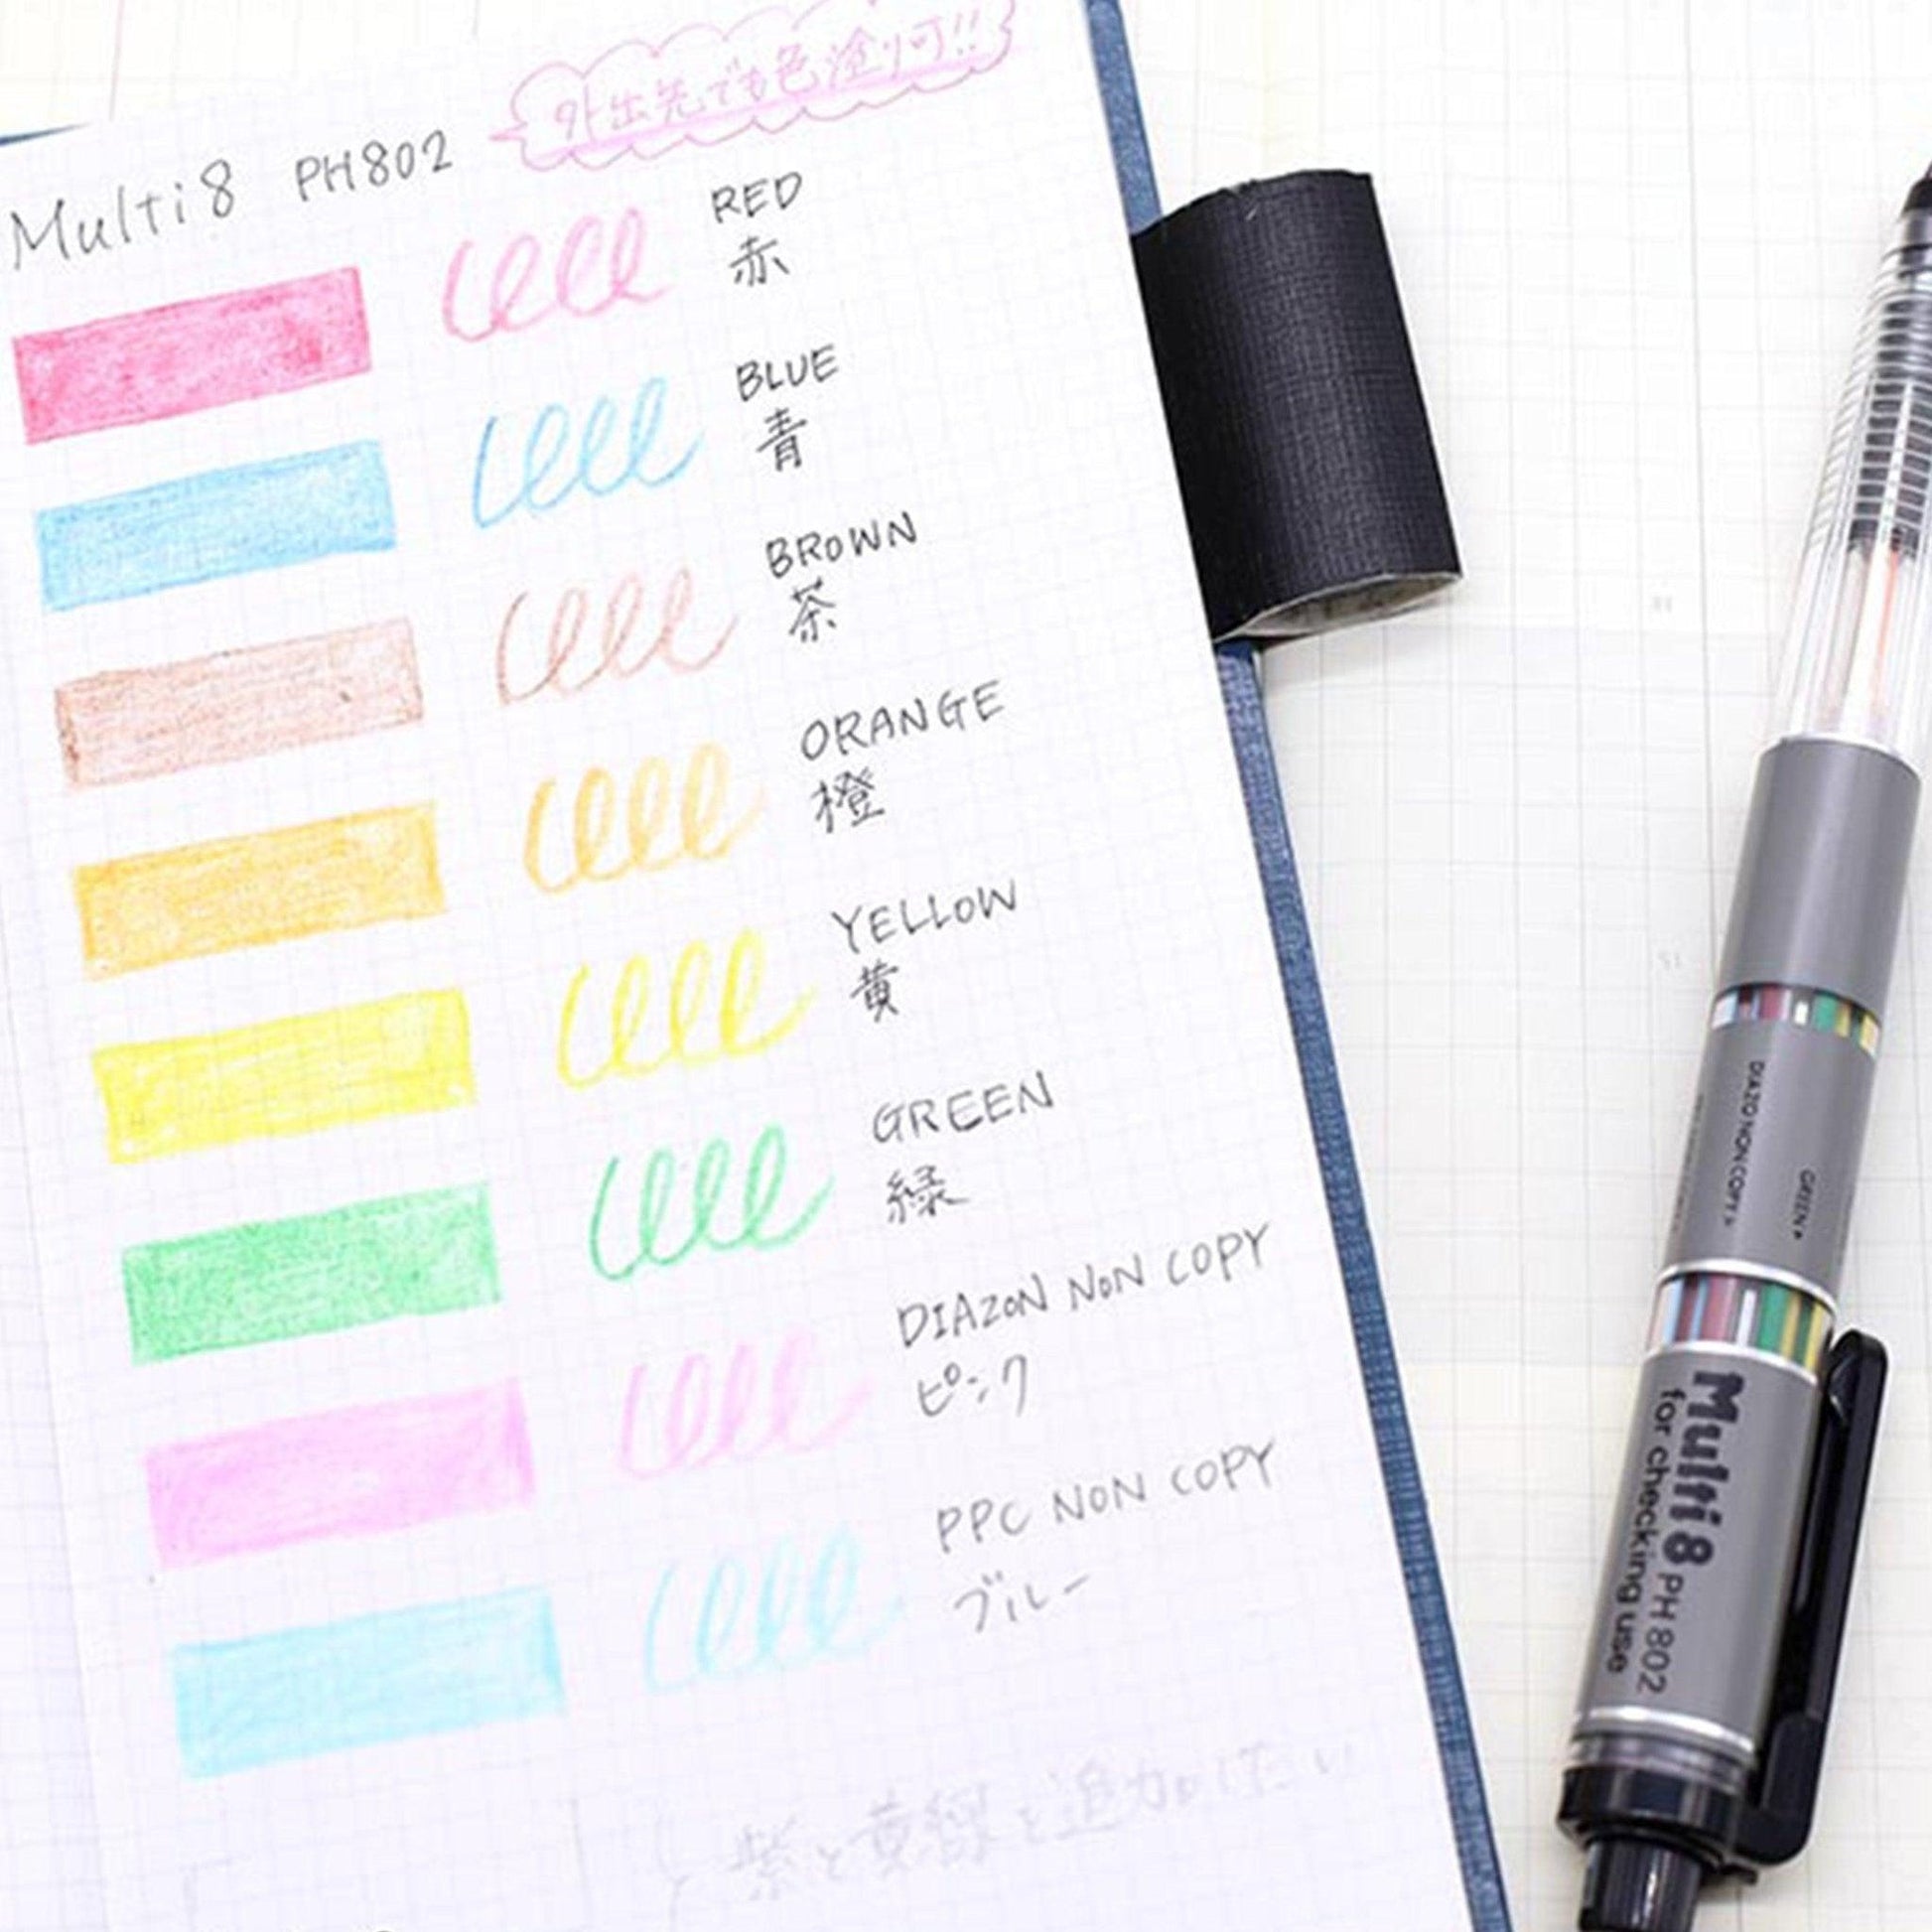 外出先でも色塗り可!!
Multi8 PH802
RED
赤
BLUE
青
BROWN
茶
ORANGE
橙
YELLOW
黄
GREEN
緑
DIAZON NON COPY
ピンク
PPC NON COPY
ブルー
紫と黄緑を追加したい
DIAZO NON COPY
GREEN
Multi8 PH802
for checking use